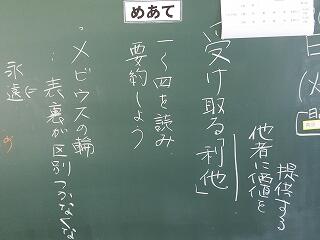 めあて
日
(火
提供する
他者に価値を
「受け取る「利他」
一〜四を読み
要約しよう
・メビウスの輪
：表裏が区別つかなくな
永遠に